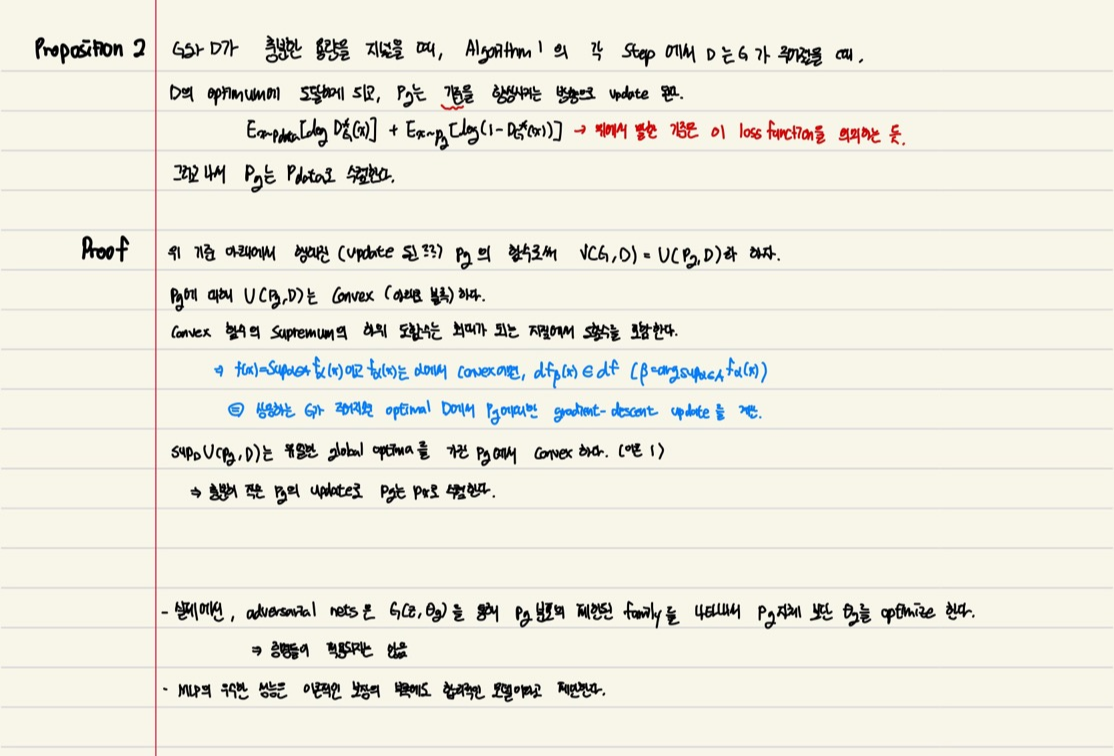 Proposition 2 G와 D가 충분한 용량을 지녔을 때, Algorithm 1 의 각 Step 에서 D는 G가 주어졌을 때.
D의 optimum에 도달하게 되고, Pg는 기준을 향상시키는 방향으로 update 된다.
E_{x~Pdata}[log D*_G(x)] + E_{x~Pg}[log(1-D*_G(x))] → 뒤에서 말한 기준은 이 loss function을 의미하는 듯.
그리고 나서 Pg는 Pdata로 수렴한다.
Proof 위 기준 아래에서 형성된 (update 된 ??) Pg 의 함수로써 V(G,D) = U(Pg,D)라 하자.
Pg에 대해 U(Pg,D)는 Convex (아래로 볼록)하다.
Convex 함수의 supremum의 하위 도함수는 최대가 되는 지점에서 도함수를 포함한다.
→ f(x)=sup_{α∈A} f_α(x)이고 f_α(x)는 α에서 convex이면, df_β(x) ∈ df (β=arg sup_{α∈A} f_α(x))
⊜ 상응하는 G가 주어지면 optimal D에서 Pg에대한 gradient-descent update를 계산.
sup_D U(Pg,D)는 유일한 global optima를 가진 Pg에서 Convex 하다. (이론 1)
⇒ 충분히 작은 Pg의 update로 Pg는 Px로 수렴한다.
- 실제에선, adversarial nets 은 G(z, θg)을 통해 Pg 분포의 제한된 family를 나타내서 Pg자체 보단 θg를 optimize 한다.
⇒ 증명들이 적용되지는 않음
- MLP의 우수한 성능은 이론적인 보장의 부족에도 합리적인 모델이라고 제안한다.